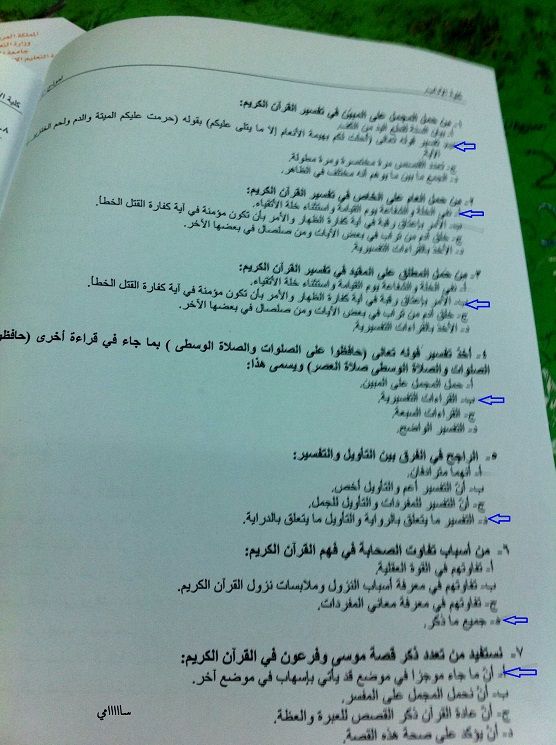 المملكة العر
وزارة التعل
جامعة
كلية الآ
١- من حمل المجمل على المبيّن في تفسير القرآن الكريم:
أ- بيان السنة لقطع اليد من الكف.
ب- تفسير قوله تعالى (أحلت لكم بهيمة الأنعام إلا ما يتلى عليكم) بقوله (حرمت عليكم الميتة والدم ولحم الخنزير
الآية.
ج- تعدد القصص مرة مختصرة ومرة مطولة.
د- الجمع ما بين ما يوهم أنه مختلف في الظاهر.
٢- من حمل العام على الخاص في تفسير القرآن الكريم:
أ- نفي الخلة والشفاعة يوم القيامة واستثناء خلة الأتقياء.
ب- الأمر بإعتاق رقبة في آية كفارة الظهار والأمر بأن تكون مؤمنة في آية كفارة القتل الخطأ.
ج- خلق آدم من تراب في بعض الآيات ومن صلصال في بعضها الآخر.
د- الأخذ بالقراءات التفسيرية.
٣- من حمل المطلق على المقيد في تفسير القرآن الكريم:
أ- نفي الخلة والشفاعة يوم القيامة واستثناء خلة الأتقياء.
ب- الأمر بإعتاق رقبة في آية كفارة الظهار والأمر بأن تكون مؤمنة في آية كفارة القتل الخطأ.
ج- خلق آدم من تراب في بعض الآيات ومن صلصال في بعضها الآخر.
د- الأخذ بالقراءات التفسيرية.
٤- أخذ تفسير قوله تعالى (حافظوا على الصلوات والصلاة الوسطى ) بما جاء في قراءة أخرى (حافظوا
الصلوات والصلاة الوسطى صلاة العصر) ويسمى هذا:
أ- حمل المجمل على المبين.
ب- القراءات التفسيرية.
ج- القراءات السبعة.
د- التفسير الواضح.
٥- الراجح في الفرق بين التأويل والتفسير:
أ- أنهما مترادفان.
ب- أنّ التفسير أعم والتأويل أخص.
ج- أنّ التفسير للمفردات والتأويل للجمل.
د- التفسير ما يتعلق بالرواية والتأويل ما يتعلق بالدراية.
٦- من أسباب تفاوت الصحابة في فهم القرآن الكريم:
أ- تفاوتهم في القوة العقلية.
ب- تفاوتهم في معرفة أسباب النزول وملابسات نزول القرآن الكريم.
ج- تفاوتهم في معرفة معاني المفردات.
د- جميع ما ذكر.
٧- نستفيد من تعدد ذكر قصة موسى وفرعون في القرآن الكريم:
أ- أنّ ما جاء موجزا في موضع قد يأتي بإسهاب في موضع آخر.
ب- أنّ نحمل المجمل على المفسر.
ج- أنّ عادة القرآن ذكر القصص للعبرة والعظة.
د- أنّ يؤكد على صحة هذه القصة.
ســااااامي